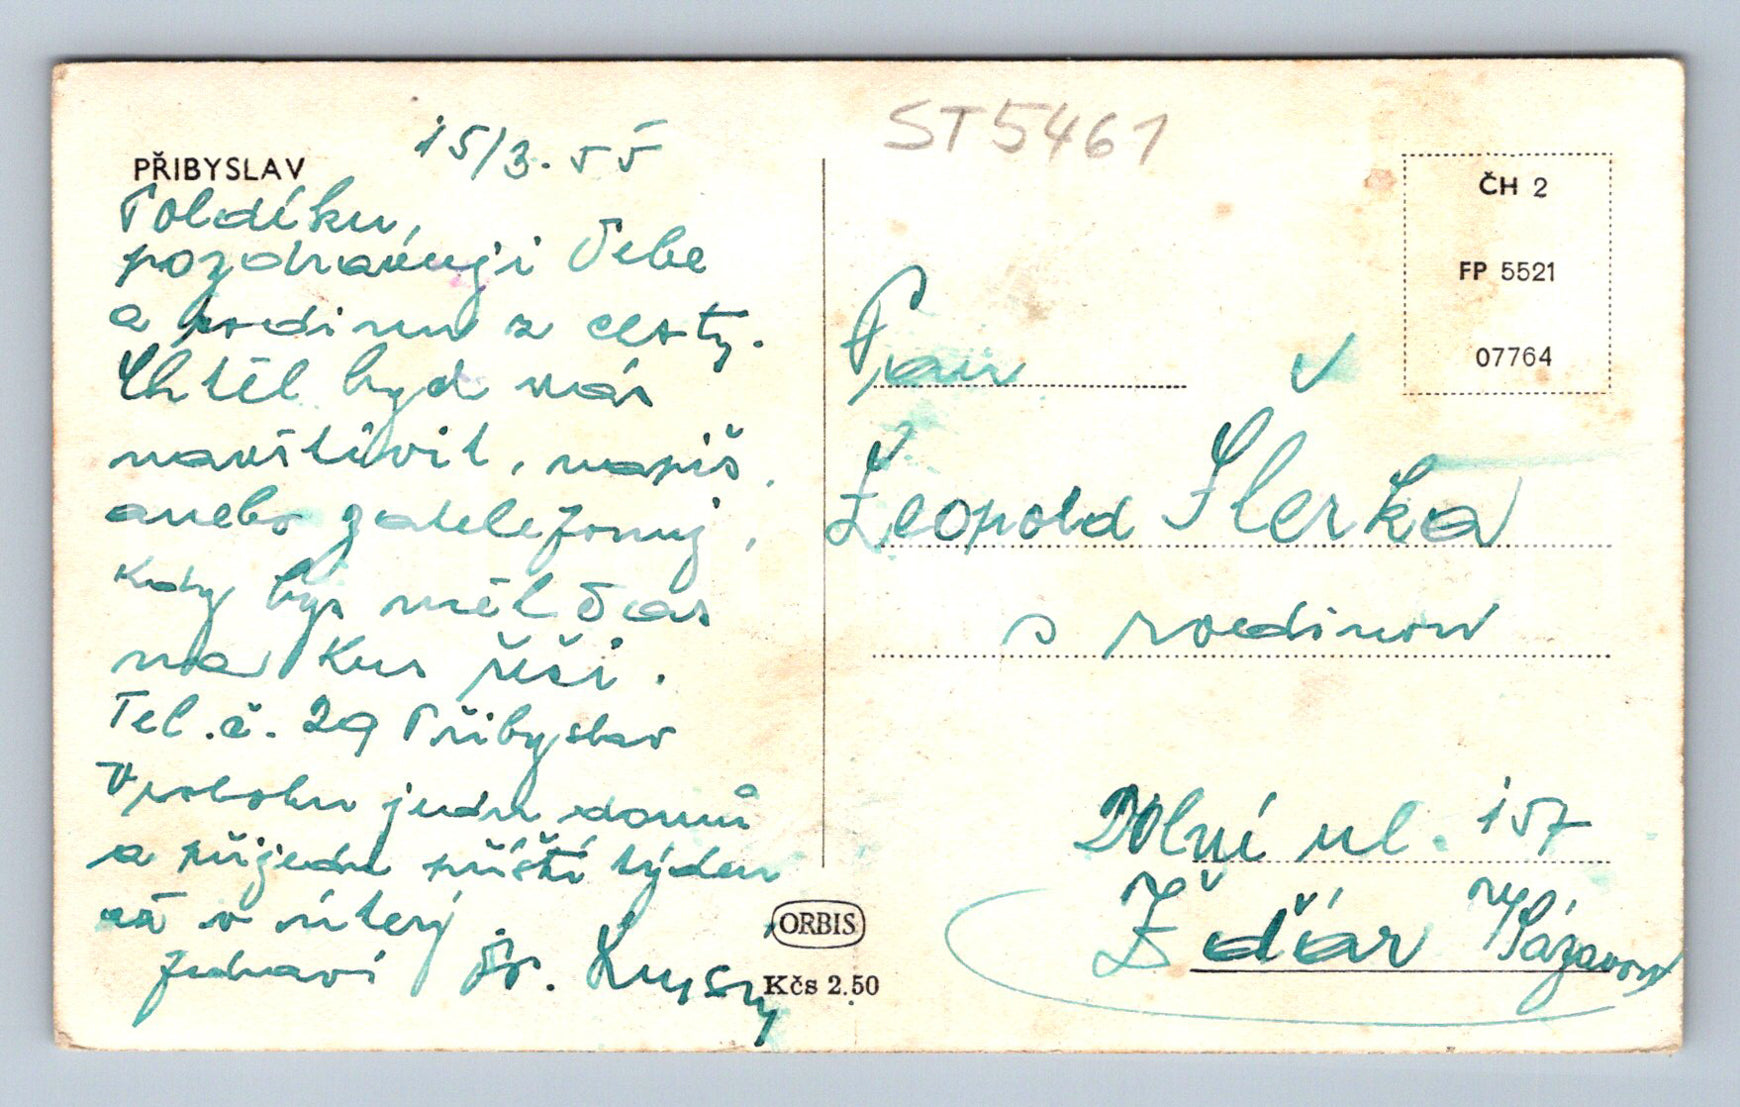 PŘIBYSLAV
15/3. 55
Poldíku,
pozdravuji Tebe
a rodinu z cesty.
Chtěl bych vás
navštívit, napiš,
anebo zatelefonuj,
kdy bys měl čas
na kus řeči.
Tel. č. 29 Přibyslav
V sobotu jedu domů
a přijedu příští týden
až v úterý
Zdraví Dr. Lysý
ORBIS
Kčs 2.50
ST5461
ČH 2
FP 5521
07764
Pan
Leopold Šlerka
s rodinou
Dolní ul. 157
Žďár n/Sázavou